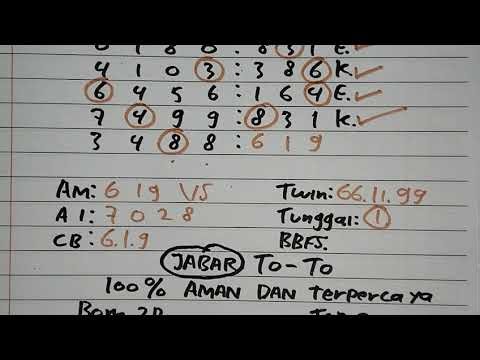 0 1 8 0 : 8 3 1 E. ✓
4 1 0 3 : 3 8 6 K. ✓
6 4 5 6 : 1 6 4 E. ✓
7 4 9 9 : 8 3 1 K. ✓
3 4 8 8 : 6 1 9
AM: 6 1 9 VS Twin: 66.11.99
A1: 7 0 2 8 Tunggal: 1
CB: 6.1.9 BBFS.
JABAR TO-TO
100% AMAN DAN Terpercaya
Bom 2D